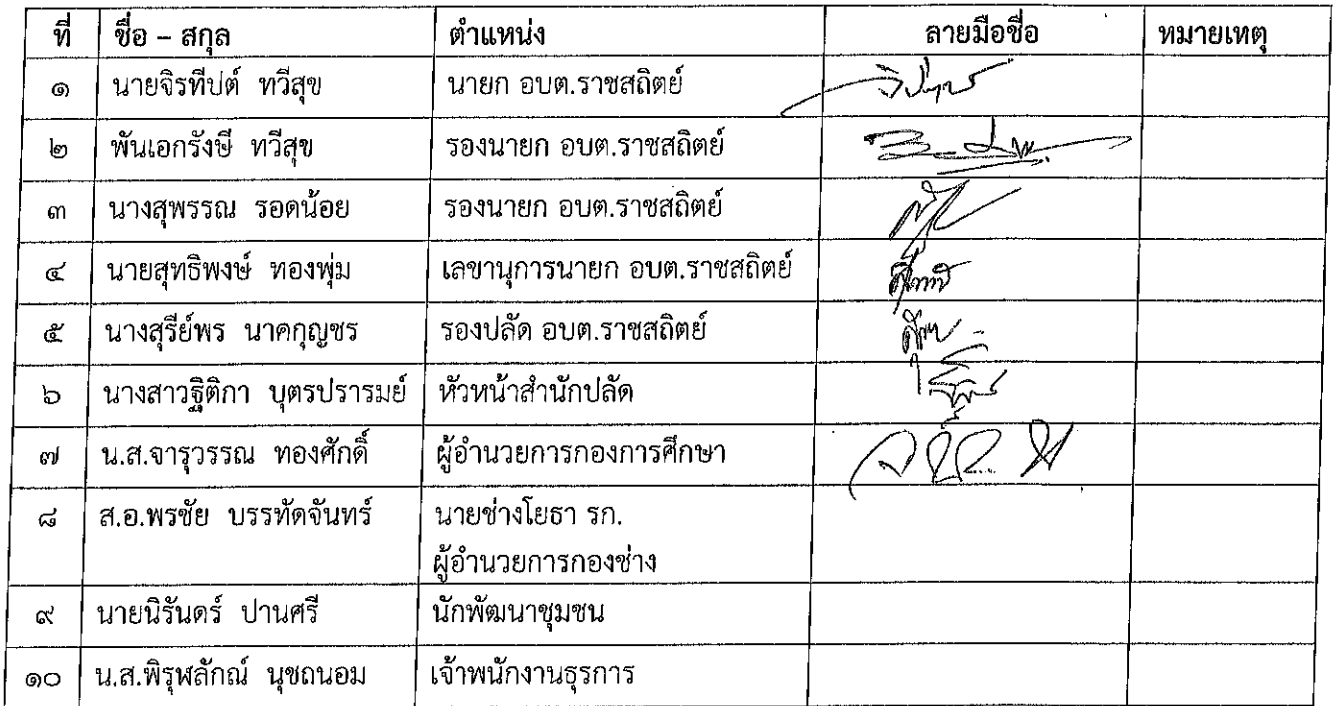 ที่ ชื่อ – สกุล ตำแหน่ง ลายมือชื่อ หมายเหตุ
๑ นายจิรทีปต์ ทวีสุข นายก อบต.ราชสถิตย์
๒ พันเอกรังษี ทวีสุข รองนายก อบต.ราชสถิตย์
๓ นางสุพรรณ รอดน้อย รองนายก อบต.ราชสถิตย์
๔ นายสุทธิพงษ์ ทองพุ่ม เลขานุการนายก อบต.ราชสถิตย์
๕ นางสุรีย์พร นาคกุญชร รองปลัด อบต.ราชสถิตย์
๖ นางสาวฐิติกา บุตรปรารมย์ หัวหน้าสำนักปลัด
๗ น.ส.จารุวรรณ ทองศักดิ์ ผู้อำนวยการกองการศึกษา
๘ ส.อ.พรชัย บรรทัดจันทร์ นายช่างโยธา รก.
ผู้อำนวยการกองช่าง
๙ นายนิรันดร์ ปานศรี นักพัฒนาชุมชน
๑๐ น.ส.พิรุฬลักณ์ นุชถนอม เจ้าพนักงานธุรการ